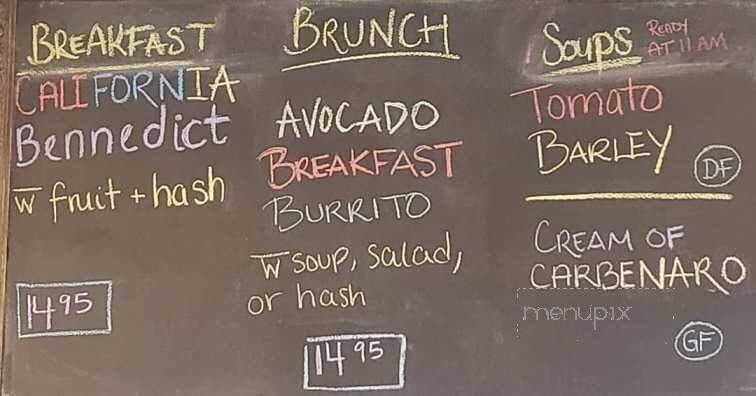 BREAKFAST
CALIFORNIA
Bennedict
w fruit + hash
14 95
BRUNCH
AVOCADO
BREAKFAST
BURRITO
w soup, salad,
or hash
14 95
Soups READY
AT 11 AM
Tomato
BARLEY
DF
CREAM OF
CARBENARO
menupix
GF